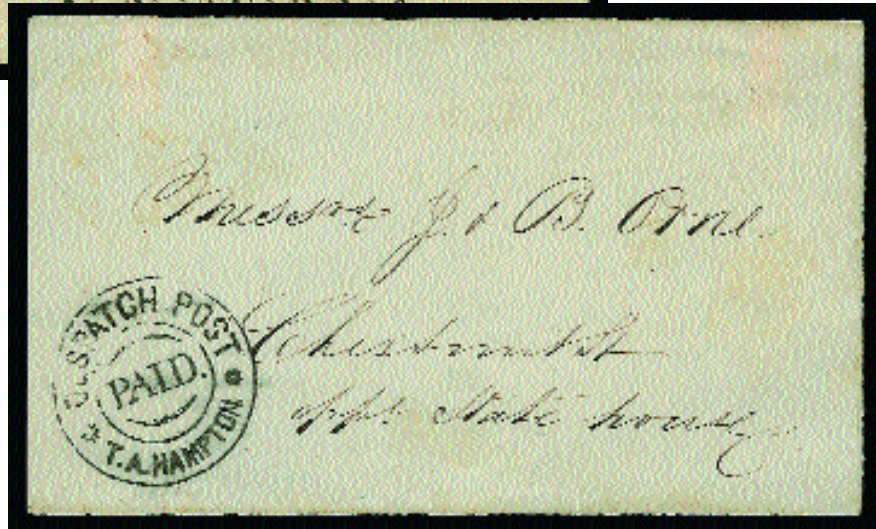 Messrs J. & B. Orne
Chesnut St
opps State house
DESPATCH POST
PAID.
T.A. HAMPTON